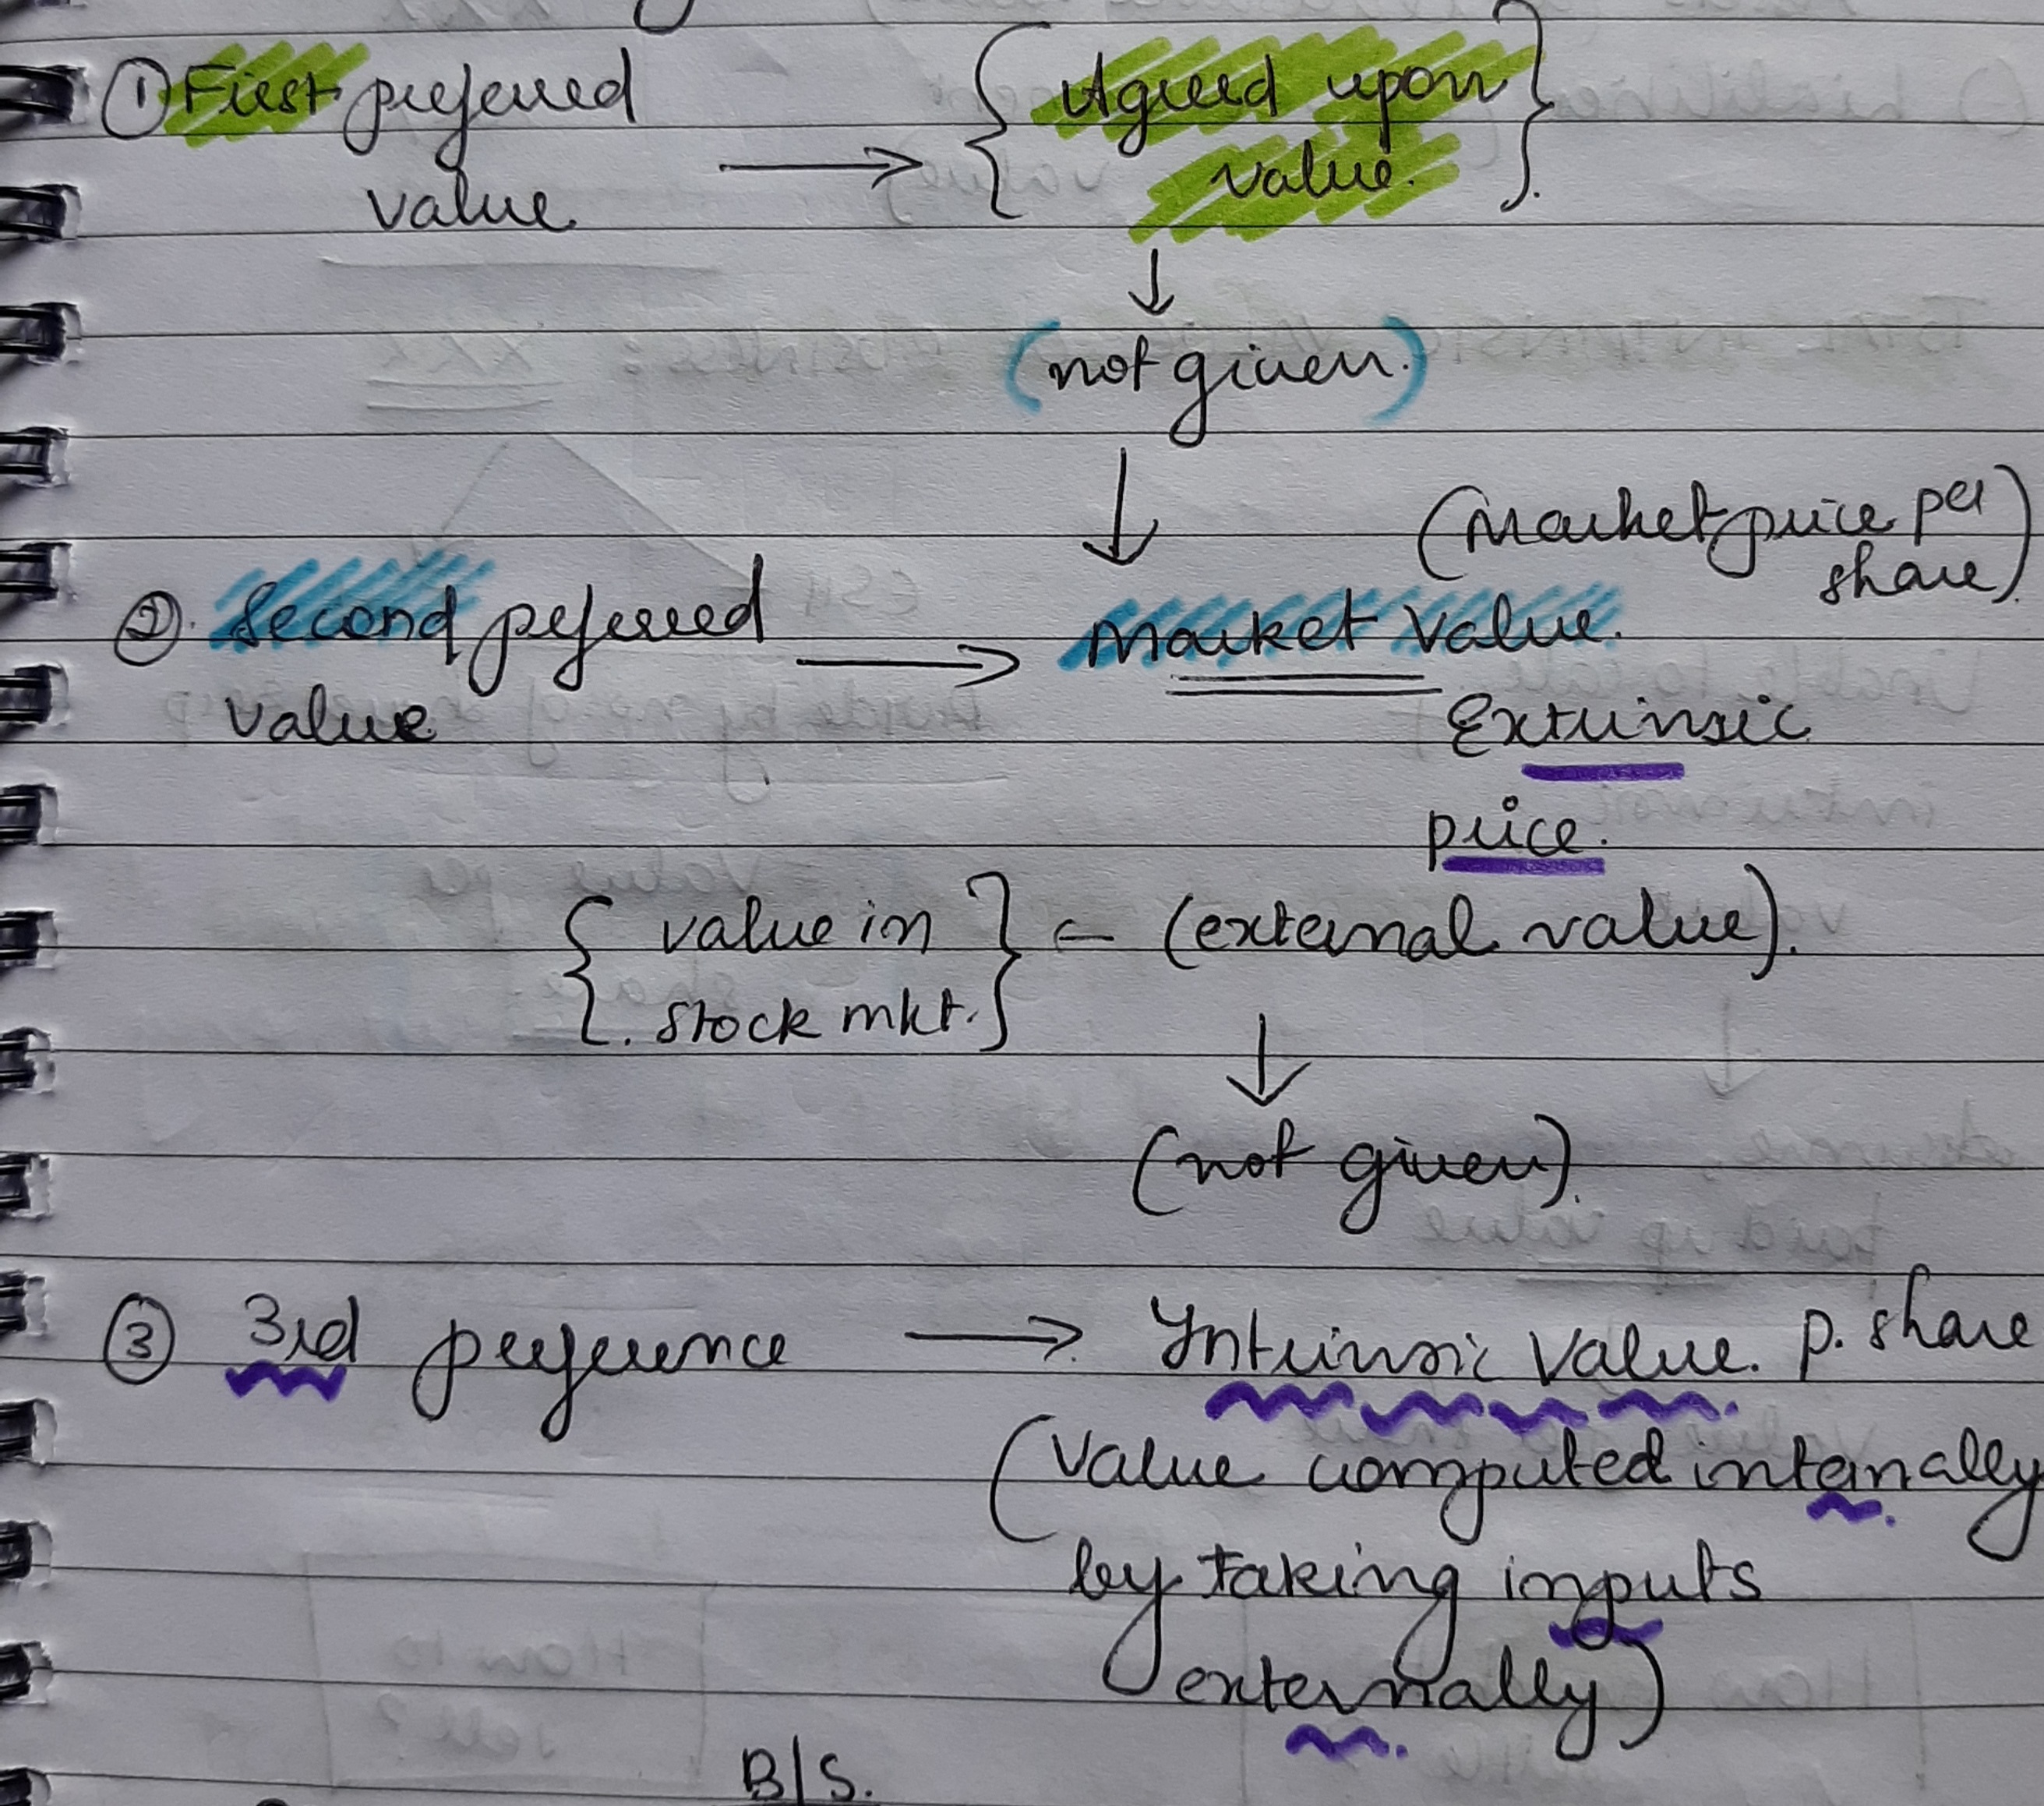 ① First preferred
value → { Agreed upon
value. }
↓
(not given.)
↓
(Market price per
share).
②. Second preferred
value → Market Value.
Extrinsic
price.
{ value in
. stock mkt. } = (external value).
↓
(not given).
③ 3rd preference → Intrinsic Value. p. share
(Value computed internally
by taking inputs
externally)
B/S.